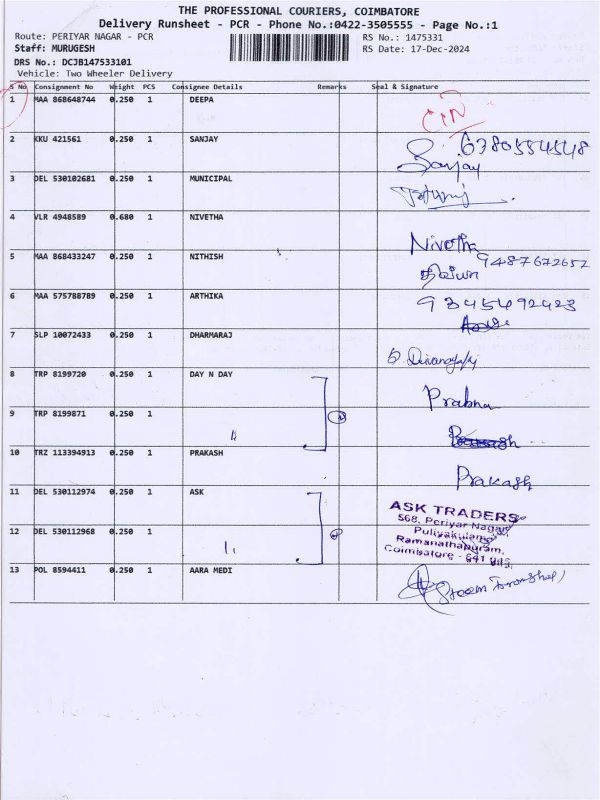 THE PROFESSIONAL COURIERS, COIMBATORE
Delivery Runsheet - PCR - Phone No.:0422-3505555 - Page No.:1
Route: PERIYAR NAGAR - PCR
RS No.: 1475331
Staff: MURUGESH
RS Date: 17-Dec-2024
DRS No.: DCJB147533101
Vehicle: Two Wheeler Delivery
S No Consignment No Weight PCS Consignee Details Remarks Seal & Signature
1 MAA 868648744 0.250 1 DEEPA
2 KKU 421561 0.250 1 SANJAY 6380554548
Sanjay
3 DEL 530102681 0.250 1 MUNICIPAL
4 VLR 4948589 0.680 1 NIVETHA
Nivetha
5 MAA 868433247 0.250 1 NITHISH 9487672652
திவ்யா
6 MAA 575788789 0.250 1 ARTHIKA 9345492423
7 SLP 10072433 0.250 1 DHARMARAJ
8 TRP 8199720 0.250 1 DAY N DAY
Prabha
9 TRP 8199871 0.250 1 "
10 TRZ 113394913 0.250 1 PRAKASH
Prakash
11 DEL 530112974 0.250 1 ASK
ASK TRADERS
568, Periyar Nagar,
Puliyakulam
12 DEL 530112968 0.250 1 "
Ramanathapuram,
Coimbatore - 641
13 POL 8594411 0.250 1 AARA MEDI